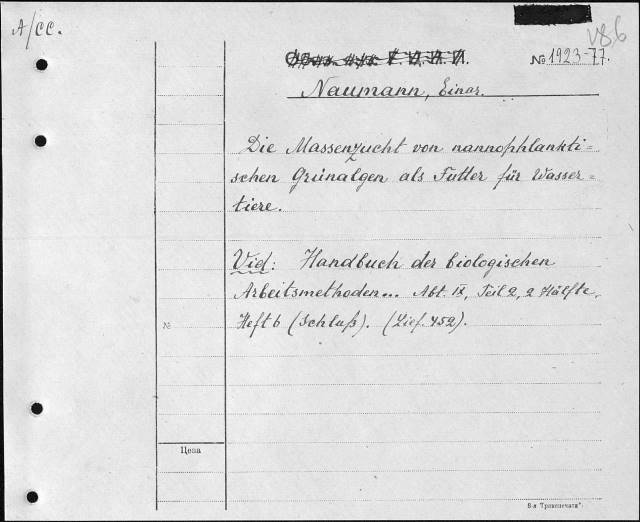 A/CC.
V86
№ 1923-77.
Naumann, Einar.
Die Massenzucht von nannophlankti=
schen Grünalgen als Futter für Wasser=
tiere.
Vid: Handbuch der biologischen
Arbeitsmethoden... Abt. IX, Teil 2, 2 Hälfte,
Heft 6 (Schluß). (Lief. 452).
№
Цена
8-я Транспечати"